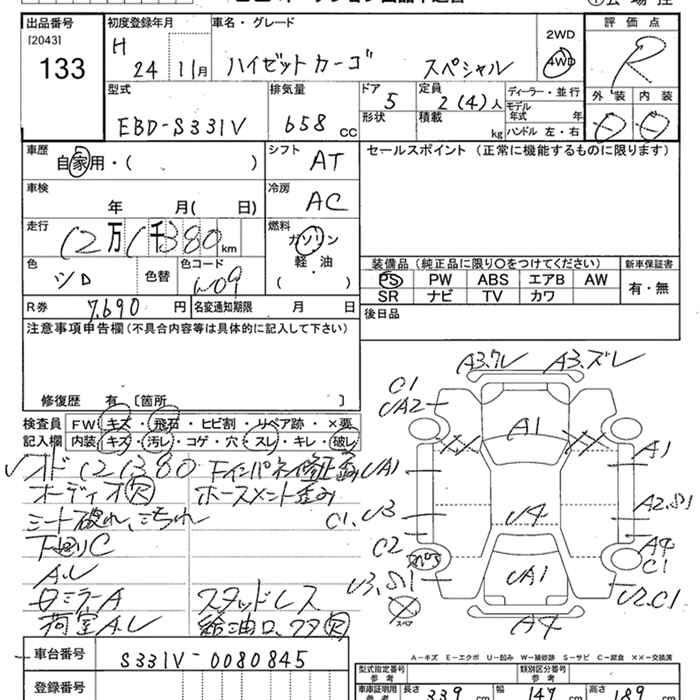 出品番号
[2043]
133
初度登録年月
H 24 11月
車名・グレード
ハイゼットカーゴ スペシャル
2WD
4WD
評価点
R
外装 内装
D D
型式
EBD-S331V
排気量
658 CC
ドア
5
定員
2(4)人
形状
積載 kg
ディーラー・並行
モデル年式 年
ハンドル 左・右
車歴
自家用・( )
シフト
AT
セールスポイント (正常に機能するものに限ります)
車検
年 月( 日)
冷房
AC
走行
12万1千380km
燃料
ガソリン
軽・油
( )
色
シロ
色替
色コード
W09
装備品(純正品に限り○をつけてください)
新車保証書
PS PW ABS エアB AW
SR ナビ TV カワ
有・無
R券
7,690円
名変通知期限 月 日
後日品
注意事項申告欄(不具合内容等は具体的に記入して下さい)
修復歴 有 [箇所
検査員記入欄
FW キズ・飛石・ヒビ割・リペア跡・×要
内装 キズ・汚レ・コゲ・穴・スレ・キレ・破レ
オド 121380
オーディオ欠
シート破れ、汚れ
下廻りC
A.U
ミラーA
荷室A.U
スタッドレス
給油口フタ欠
A3.ワレ A3.ズレ
C1
UA2
A1
XX XX
UA1
A1
C1.U3
U4
A2.S1
C2
A4
C1
UA1
U3.S1
スペア
U2.C1
A4
A-キズ E-エクボ U-凹み W-補修跡 S-サビ C-腐食 XX-交換済
車台番号
S331V-0080845
登録番号
型式指定番号 参考
類別区分番号 参考
車庫証明用 参考
長さ 339 cm 幅 147 cm 高さ 189 cm